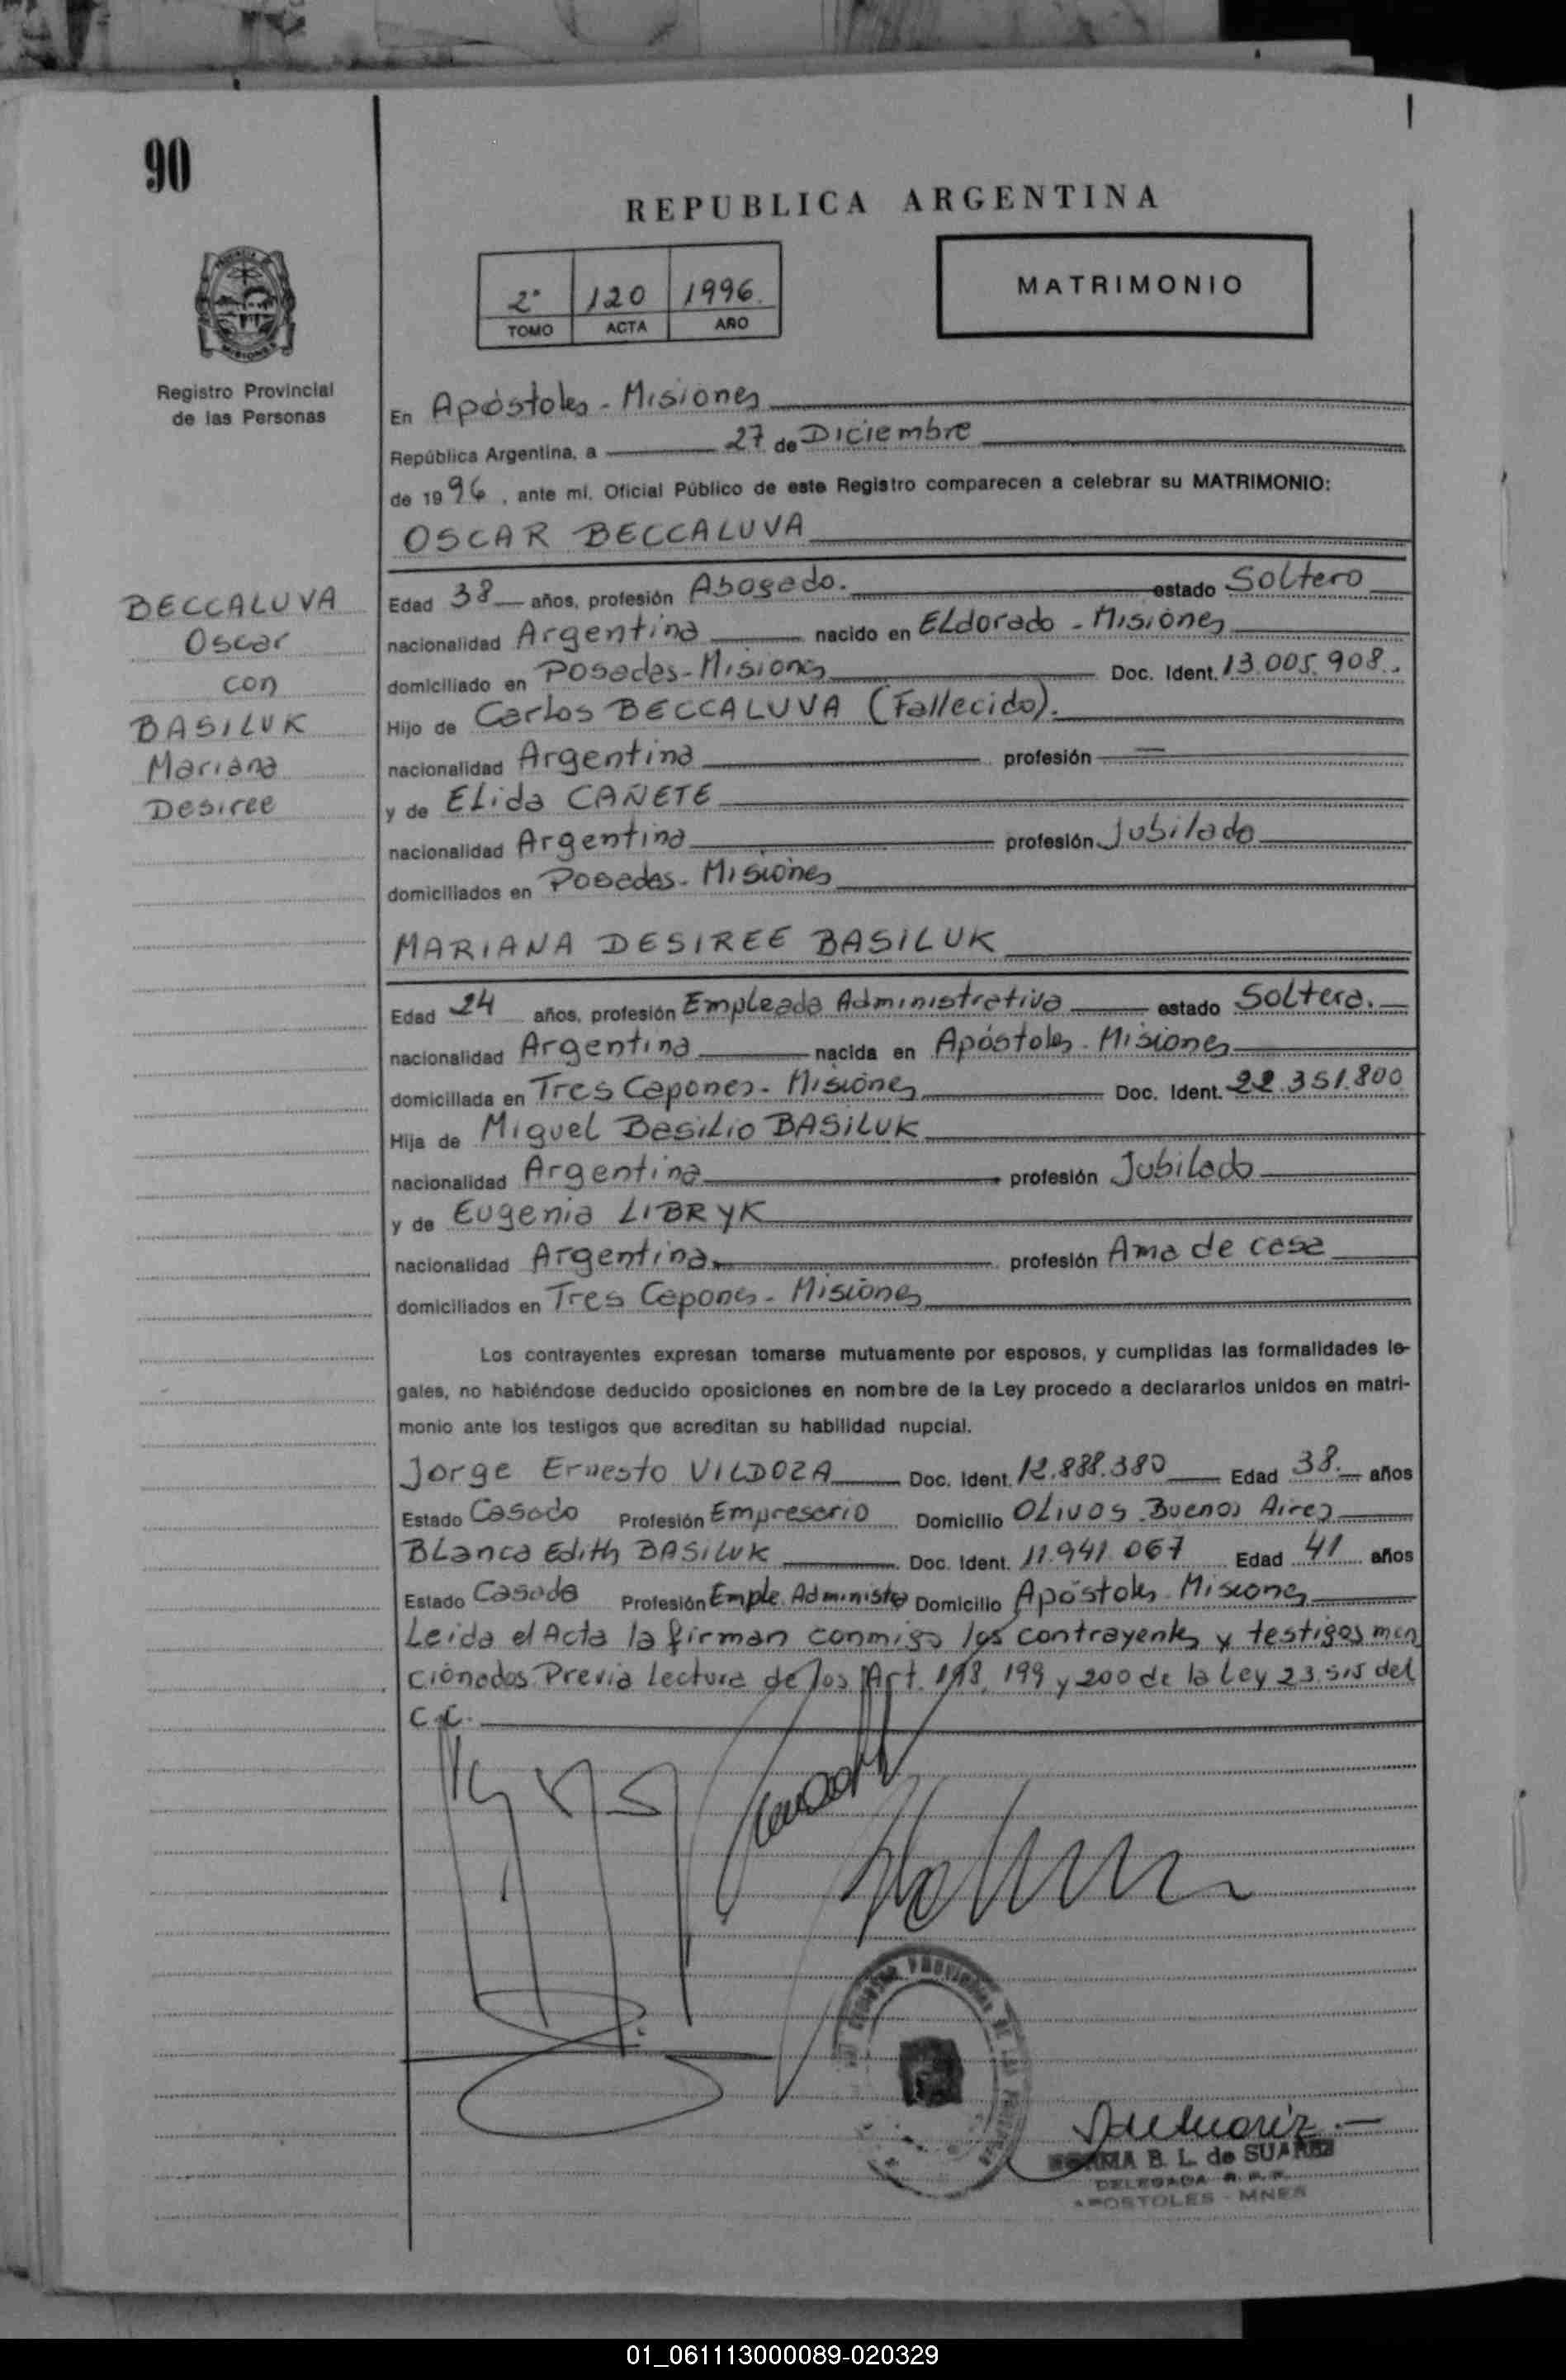 90
REPUBLICA ARGENTINA
2º 120 1996.
TOMO ACTA AÑO
MATRIMONIO
Registro Provincial
de las Personas
En Apóstoles - Misiones
República Argentina, a 27 de Diciembre
de 1996, ante mí, Oficial Público de este Registro comparecen a celebrar su MATRIMONIO:
OSCAR BECCALUVA
BECCALUVA
Oscar
con
BASILUK
Mariana
Desiree
Edad 38 años, profesión Abogado. estado Soltero
nacionalidad Argentina nacido en Eldorado - Misiones
domiciliado en Posadas - Misiones Doc. Ident. 13.005.908.
Hijo de Carlos BECCALUVA (Fallecido).
nacionalidad Argentina profesión —
y de Elida CAÑETE
nacionalidad Argentina profesión Jubilada
domiciliados en Posadas - Misiones
MARIANA DESIREE BASILUK
Edad 24 años, profesión Empleada Administrativa estado Soltera.
nacionalidad Argentina nacida en Apóstoles - Misiones
domiciliada en Tres Capones - Misiones Doc. Ident. 22.351.800
Hija de Miguel Basilio BASILUK
nacionalidad Argentina profesión Jubilado
y de Eugenia LIBRYK
nacionalidad Argentina profesión Ama de casa
domiciliados en Tres Capones - Misiones
Los contrayentes expresan tomarse mutuamente por esposos, y cumplidas las formalidades le-
gales, no habiéndose deducido oposiciones en nombre de la Ley procedo a declararlos unidos en matri-
monio ante los testigos que acreditan su habilidad nupcial.
Jorge Ernesto VILDOZA Doc. Ident. 12.888.380 Edad 38. años
Estado Casado Profesión Empresario Domicilio Olivos - Buenos Aires
Blanca Edith BASILUK Doc. Ident. 11.941.067 Edad 41 años
Estado Casada Profesión Emple. Administ Domicilio Apóstoles - Misiones
Leida el Acta la firman conmigo los contrayentes y testigos men
cionados. Previa Lectura de los Art. 198, 199 y 200 de la Ley 23.515 del
C.C.
B. L. de SUAREZ
DELEGADA R. P. P.
APOSTOLES - MNES
01_061113000089-020329